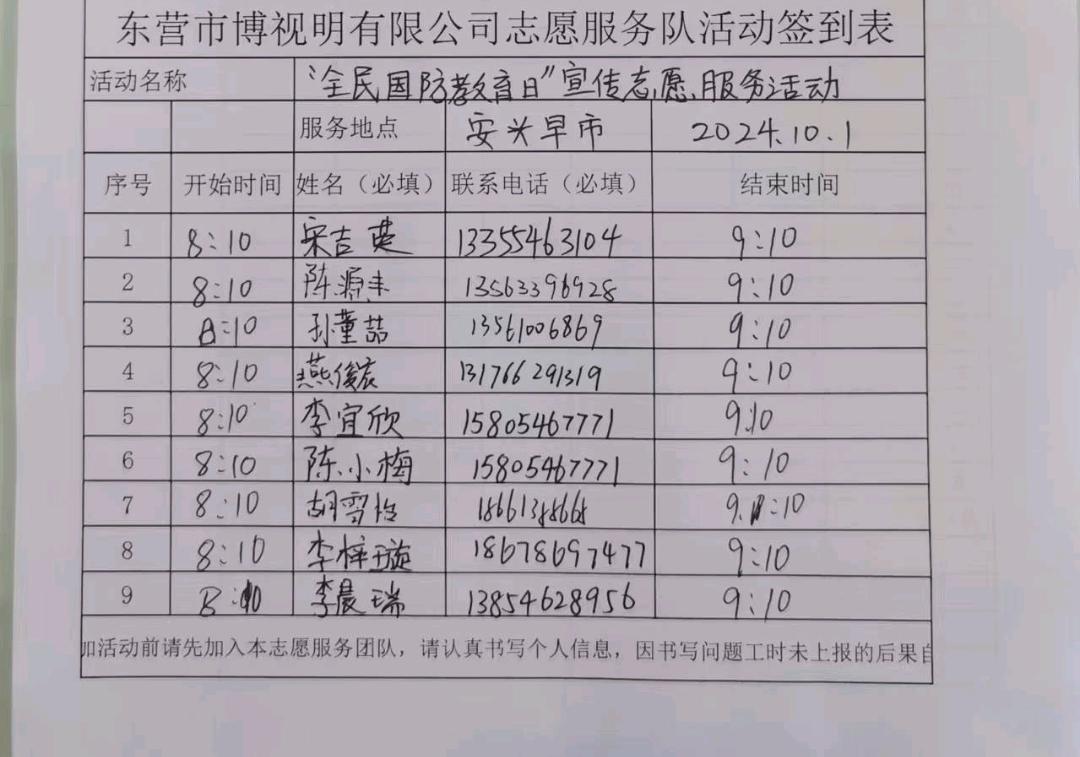 东营市博视明有限公司志愿服务队活动签到表
活动名称 “全民国防教育日”宣传志愿服务活动
服务地点 安兴早市 2024.10.1
序号 开始时间 姓名（必填） 联系电话（必填） 结束时间
1 8:10 宋吉英 13355463104 9:10
2 8:10 陈源丰 13563396928 9:10
3 8:10 孙董喆 13561006869 9:10
4 8:10 燕俊宸 13176629319 9:10
5 8:10 李宜欣 15805467771 9:10
6 8:10 陈小梅 15805467771 9:10
7 8:10 胡雪怡 9:10
8 8:10 李梓璇 18678697477 9:10
9 8:10 李晨瑞 13854628956 9:10
加活动前请先加入本志愿服务团队，请认真书写个人信息，因书写问题工时未上报的后果自